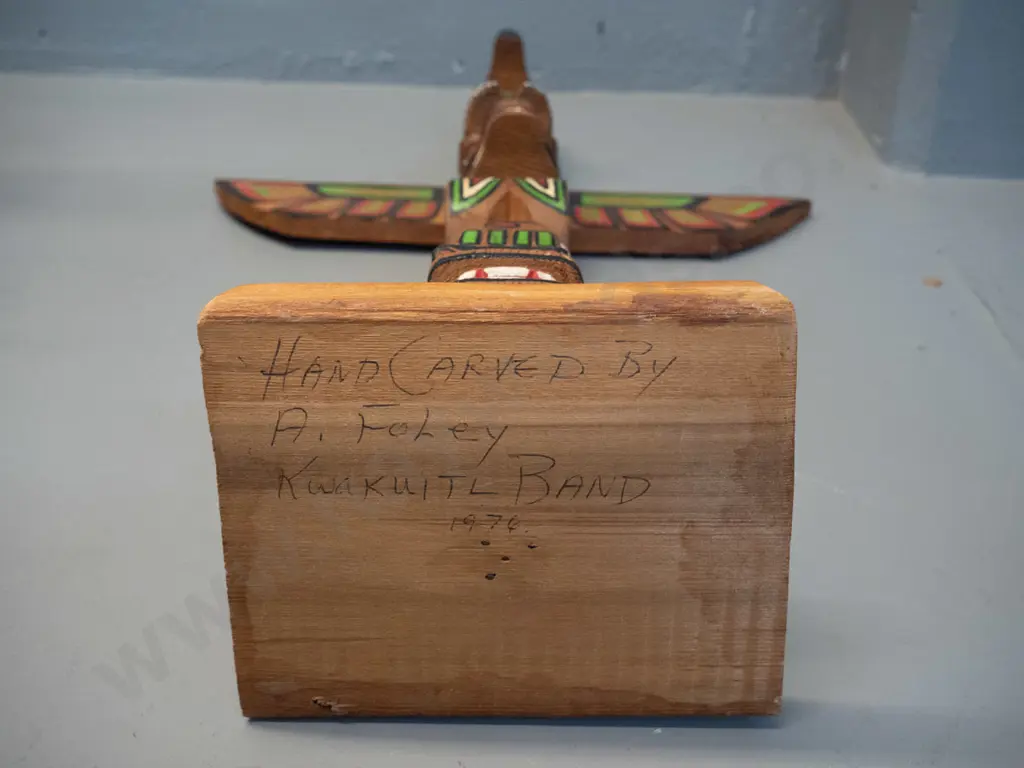 Hand Carved By
A. Foley
Kwakuitl Band
1976.
www